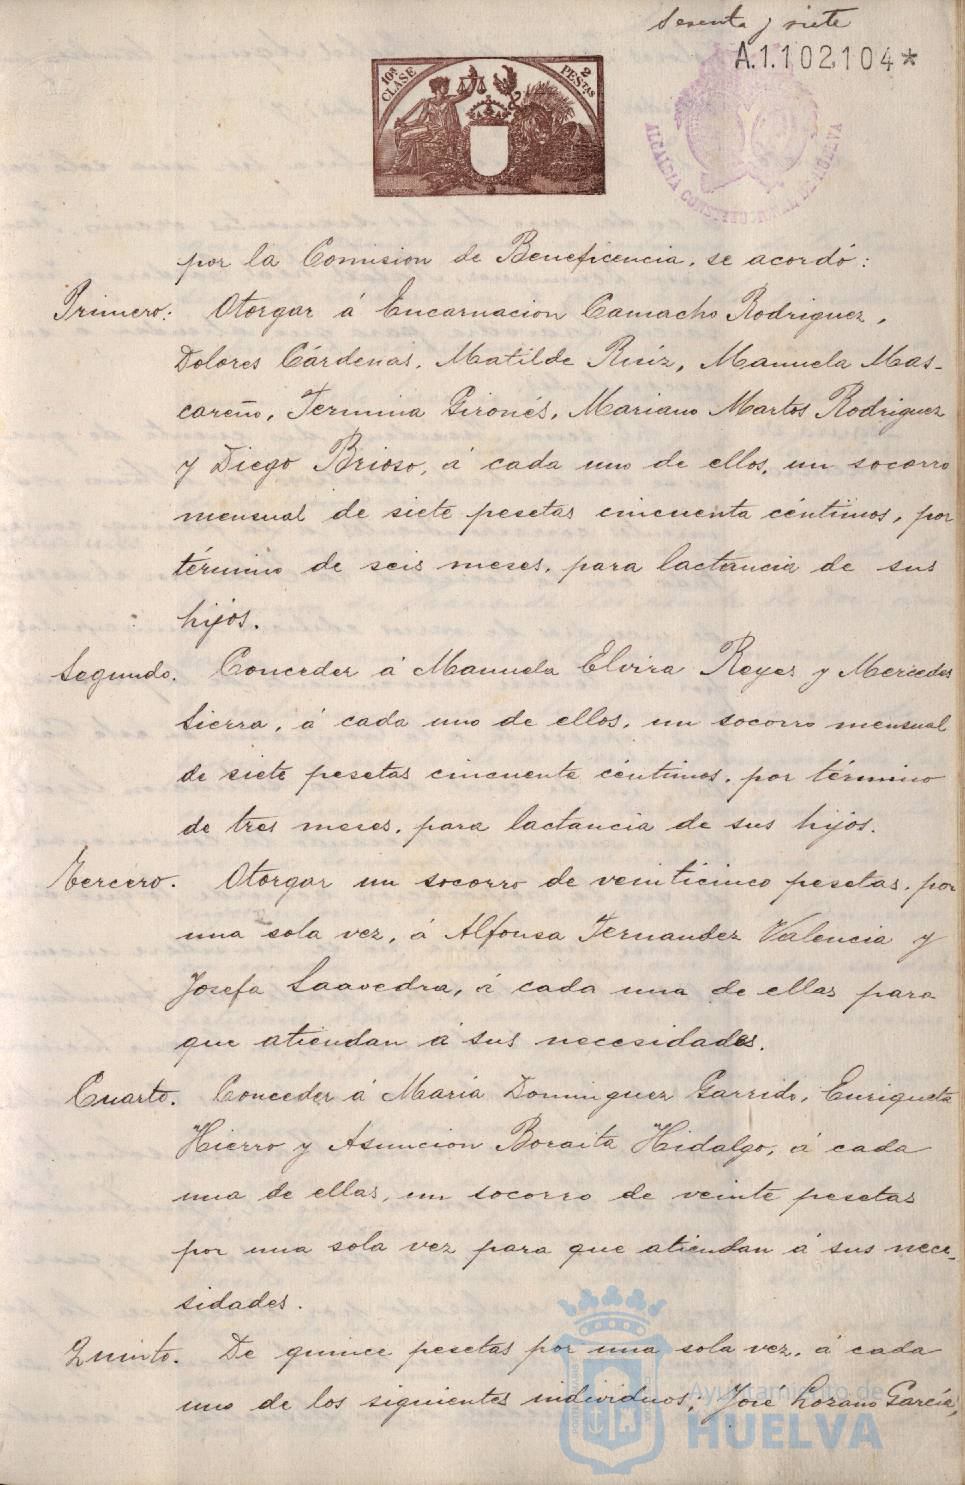 Sesenta y siete
A.1.102,104*
10ª CLASE
2 PESTAS
ALCALDIA CONSTITUCIONAL DE HUELVA
por la Comision de Beneficencia, se acordó:
Primero: Otorgar á Encarnacion Camacho Rodriguez,
Dolores Cárdenas, Matilde Ruiz, Manuela Mas-
careño, Fermina Gironés, Mariano Martos Rodriguez
y Diego Brioso, á cada uno de ellos, un socorro
mensual de siete pesetas cincuenta céntimos, por
término de seis meses, para lactancia de sus
hijos.
Segundo. Conceder á Manuela Elvira Reyes y Mercedes
Sierra, á cada uno de ellos, un socorro mensual
de siete pesetas cincuenta céntimos, por término
de tres meses, para lactancia de sus hijos.
Tercero. Otorgar un socorro de veinticinco pesetas, por
una sola vez, á Alfonsa Fernandez Valencia y
Josefa Saavedra, á cada una de ellas para
que atiendan á sus necesidades.
Cuarto. Conceder á Maria Dominguez Garrido, Enriqueta
Hierro y Asuncion Boraita Hidalgo, á cada
una de ellas, un socorro de veinte pesetas
por una sola vez para que atiendan á sus nece-
sidades.
Quinto. De quince pesetas por una sola vez, á cada
uno de los siguientes individuos; José Lozano García,
Ayuntamiento de
HUELVA